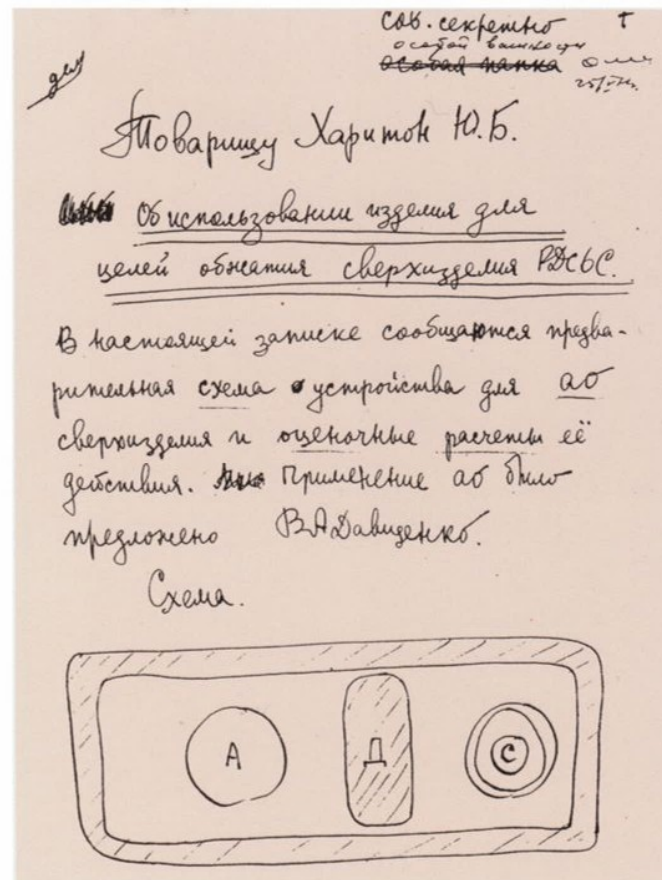 сов. секретно
особой важности
особая папка
Товарищу Харитон Ю.Б.
Об использовании изделия для
целей обжатия сверхизделия РДС6С.
В настоящей записке сообщаются предва-
рительная схема устройства для АО
сверхизделия и оценочные расчеты её
действия. Применение АО было
предложено В.А.Давиденко.
Схема.
А Д С